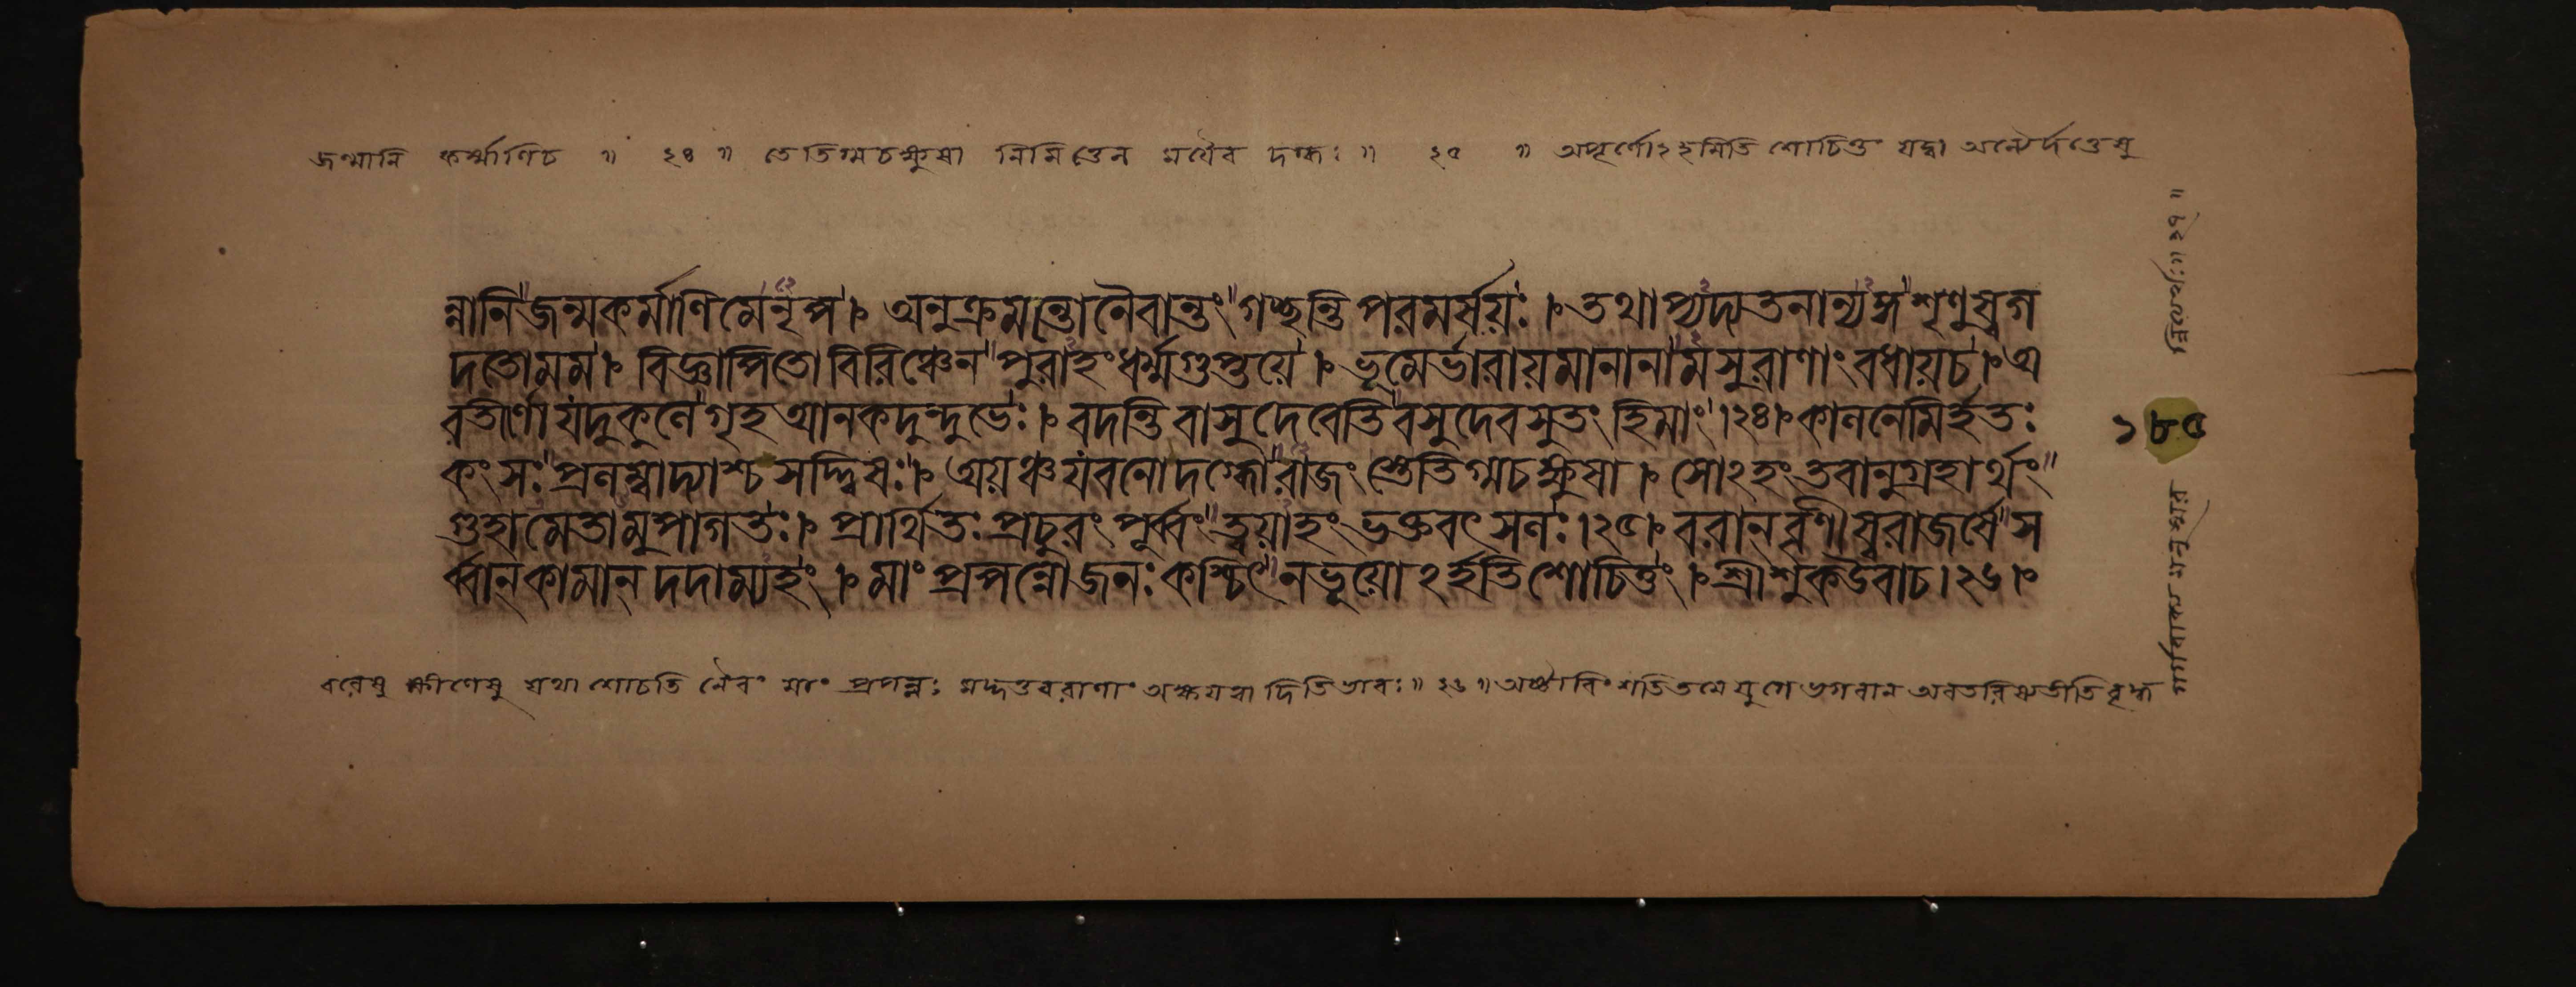 জন্মানি কর্ম্মাণিচ ॥ ২৪ ॥ তেতিগ্মচক্ষুষা নিমিত্তেন ময়ৈব দগ্ধঃ ॥ ২৫ ॥ অপূর্ণোঽহমিতি শোচিতুং যদ্বা অন্যৈর্দত্তেষু
ন্নানি জন্মকর্মাণিমেনৃপ । অনুক্রমন্তোনৈবান্তং গচ্ছন্তি পরমর্ষয়ঃ । তথাপ্যদ্যতনান্যঙ্গ শৃণুষ্বগ
দতোমম । বিজ্ঞাপিতো বিরিঞ্চেন পুরাহংধর্ম্মগুপ্তয়ে । ভূমের্ভারায়মানানামসুরাণাং বধায়চ । অ
বতীর্ণো যদুকুলে গৃহ আনকদুন্দুভেঃ । বদন্তি বাসুদেবেতি বসুদেবসুতং হিমাং ।২৪। কালনেমির্হতঃ
কংসঃ প্রলম্বাদ্যাশ্চ সদ্দ্বিষঃ । অয়ঞ্চ যবনোদগ্ধোরাজংস্তেতিগ্মচক্ষুষা । সোঽহং তবানুগ্রহার্থং
গুহামেতামুপাগতঃ । প্রার্থিতঃ প্রচুরং পূর্ব্বং ত্বয়াহং ভক্তবৎসলঃ ।২৫। বরান্বৃণীষ্বরাজর্ষে স
র্ব্বান্কামান্ দদাম্যহং । মাং প্রপন্নোজনঃ কশ্চিৎ নভূয়োঽর্হতিশোচিতুং । শ্রীশুকউবাচ ।২৬।
বরেষু ক্ষীণেষু যথা শোচতি নৈবং মাং প্রপন্নঃ মদ্দত্তবরাণাং অক্ষয়ত্বাদিতিভাবঃ ॥ ২৬ ॥ অষ্টাবিংশতিতমেযুগে ভগবান অবতরিষ্যতীতি বৃদ্ধ
১৮৫